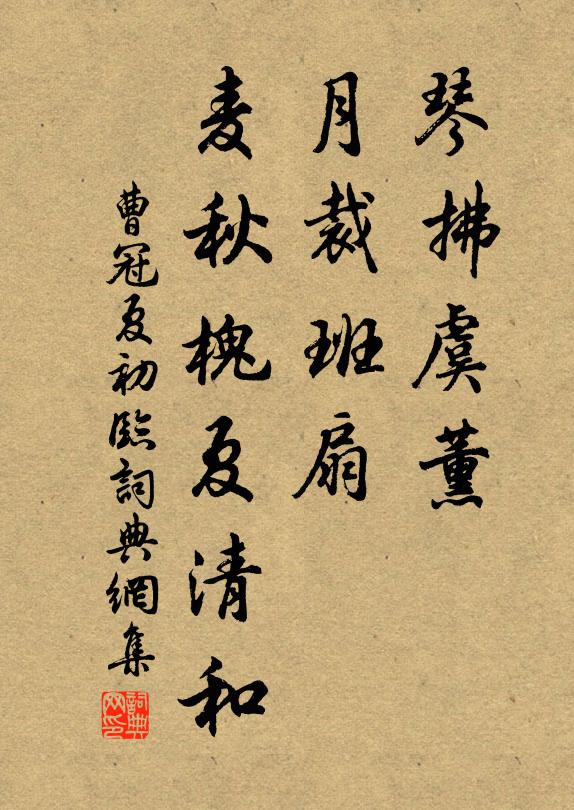 琴拂虞薰
月裁班扇
麦秋槐夏清和
曹冠夏初臨詞典網集
詞典网印